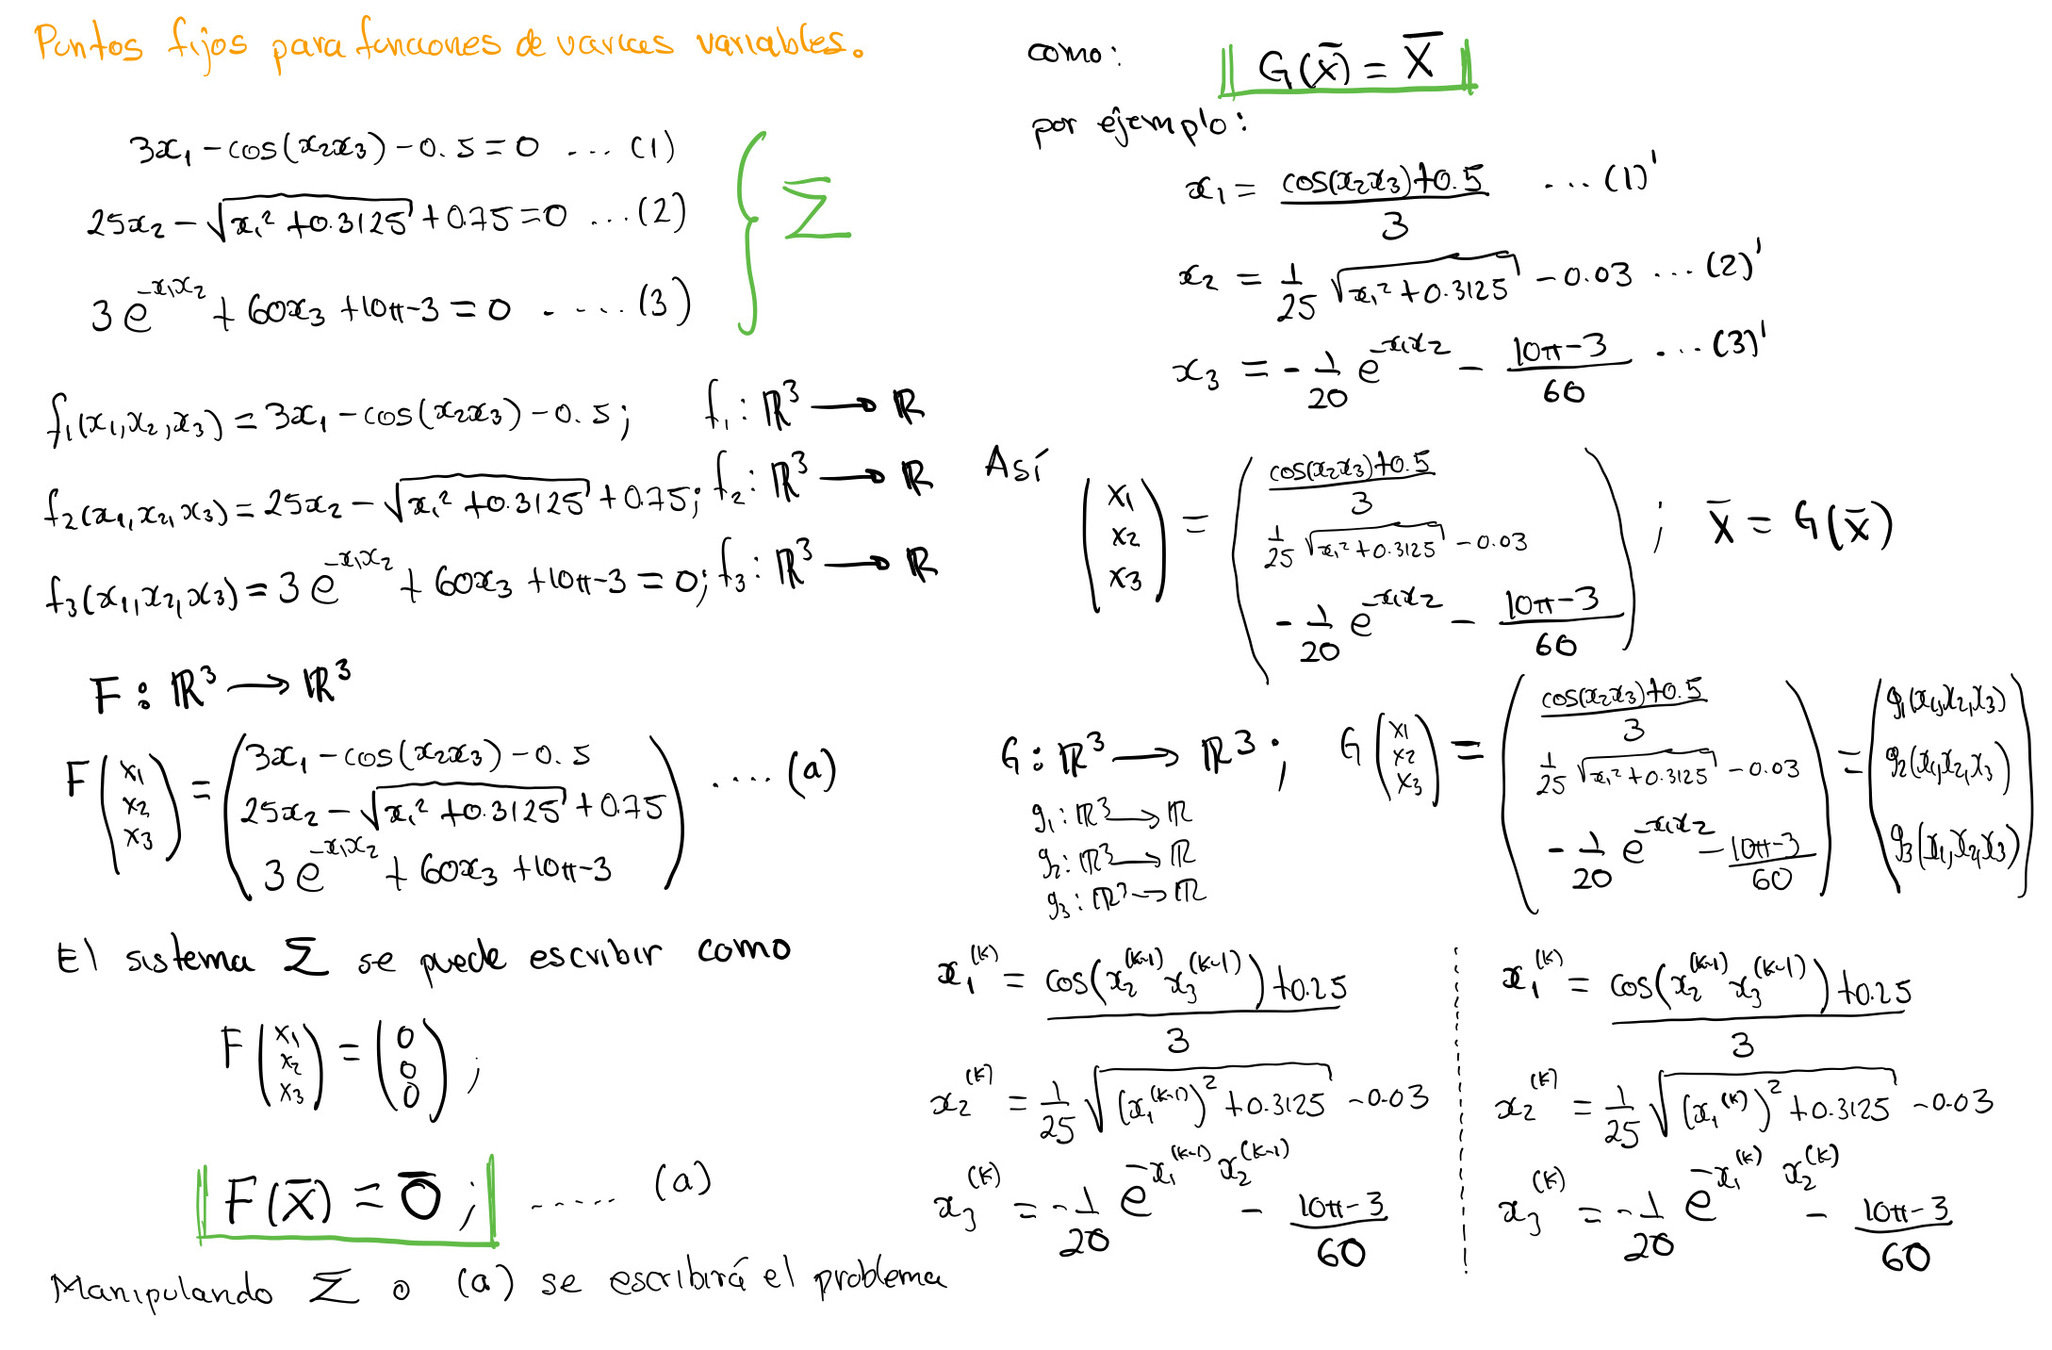 Puntos fijos para funciones de varias variables.
3x₁ - cos(x₂x₃) - 0.5 = 0 ... (1)
25x₂ - √(x₁² + 0.3125) + 0.75 = 0 ... (2)
3e^(-x₁x₂) + 60x₃ + 10π - 3 = 0 ..... (3)
} Σ
f₁(x₁, x₂, x₃) = 3x₁ - cos(x₂x₃) - 0.5; f₁ : ℝ³ → ℝ
f₂(x₁, x₂, x₃) = 25x₂ - √(x₁² + 0.3125) + 0.75; f₂ : ℝ³ → ℝ
f₃(x₁, x₂, x₃) = 3e^(-x₁x₂) + 60x₃ + 10π - 3 = 0; f₃ : ℝ³ → ℝ
F : ℝ³ → ℝ³
F (x₁ x₂ x₃) = (3x₁ - cos(x₂x₃) - 0.5
25x₂ - √(x₁² + 0.3125) + 0.75
3e^(-x₁x₂) + 60x₃ + 10π - 3) .... (a)
El sistema Σ se puede escribir como
F (x₁ x₂ x₃) = (0 0 0) ;
F(x̄) = 0̄ ; ..... (a)
Manipulando Σ o (a) se escribirá el problema
como: G(x̄) = X̄
por ejemplo:
x₁ = (cos(x₂x₃) + 0.5)/3 ... (1)'
x₂ = 1/25 √(x₁² + 0.3125) - 0.03 ... (2)'
x₃ = -1/20 e^(-x₁x₂) - (10π - 3)/60 ... (3)'
Así
(x₁ x₂ x₃) = ((cos(x₂x₃) + 0.5)/3
1/25 √(x₁² + 0.3125) - 0.03
-1/20 e^(-x₁x₂) - (10π - 3)/60) ; X̄ = G(x̄)
G : ℝ³ → ℝ³ ; G (x₁ x₂ x₃) = ((cos(x₂x₃) + 0.5)/3
1/25 √(x₁² + 0.3125) - 0.03
-1/20 e^(-x₁x₂) - (10π - 3)/60) = (g₁(x₁, x₂, x₃)
g₂(x₁, x₂, x₃)
g₃(x₁, x₂, x₃))
g₁ : ℝ³ → ℝ
g₂ : ℝ³ → ℝ
g₃ : ℝ³ → ℝ
x₁^(k) = (cos(x₂^(k-1) x₃^(k-1)) + 0.25)/3
x₂^(k) = 1/25 √((x₁^(k-1))² + 0.3125) - 0.03
x₃^(k) = -1/20 e^(-x₁^(k-1) x₂^(k-1)) - (10π - 3)/60
x₁^(k) = (cos(x₂^(k-1) x₃^(k-1)) + 0.25)/3
x₂^(k) = 1/25 √((x₁^(k))² + 0.3125) - 0.03
x₃^(k) = -1/20 e^(-x₁^(k) x₂^(k)) - (10π - 3)/60